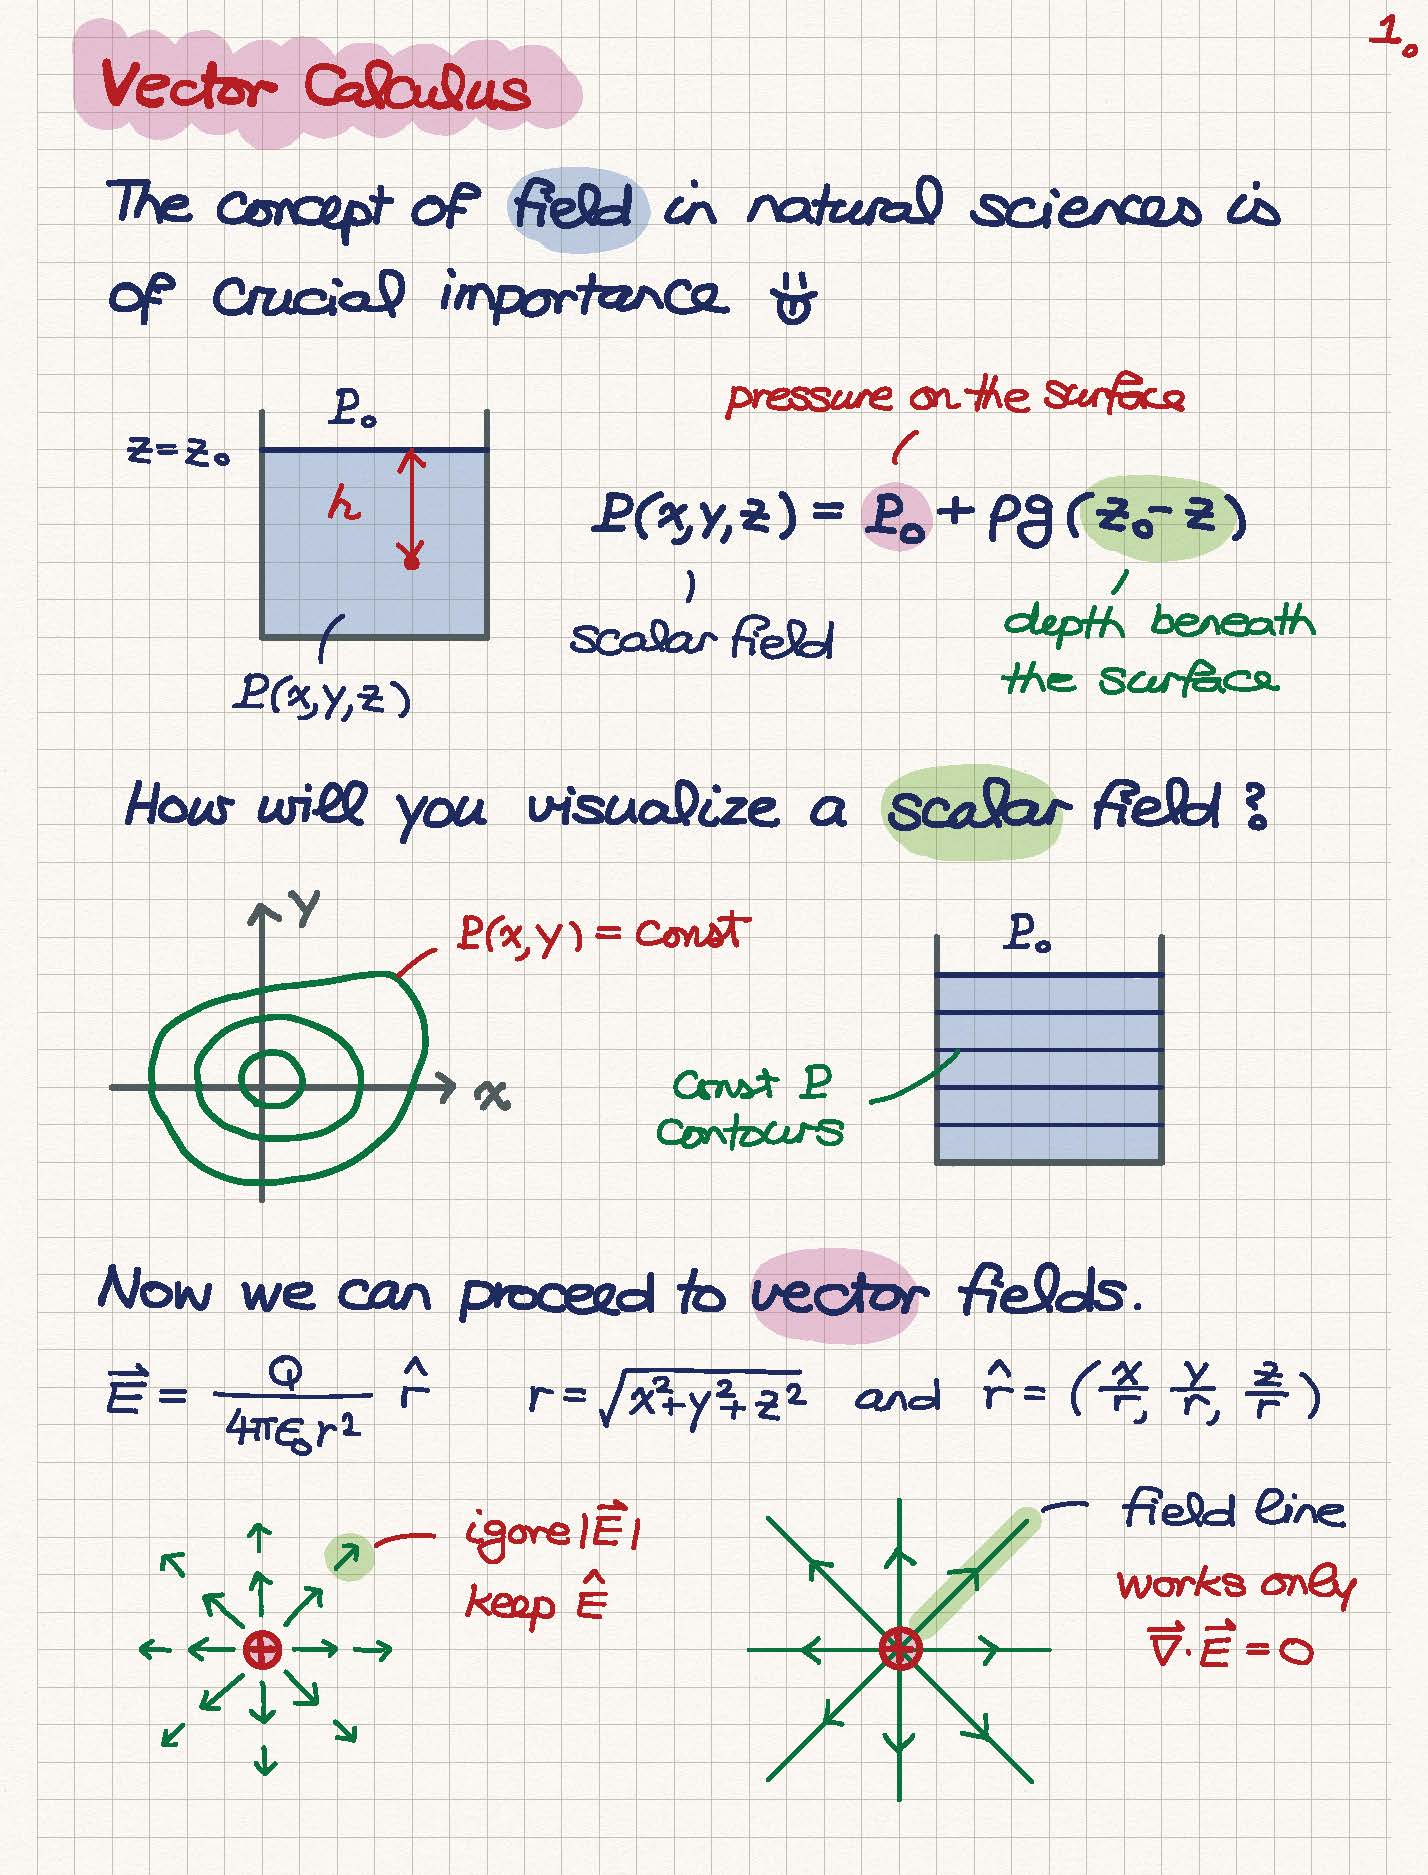 1.
Vector Calculus
The concept of field in natural sciences is
of crucial importance
P₀
z = z₀
h
P(x,y,z)
pressure on the surface
P(x,y,z) = P₀ + ρg(z₀-z)
scalar field
depth beneath
the surface
How will you visualize a scalar field?
y
P(x,y) = const
x
P₀
const P
contours
Now we can proceed to vector fields.
E⃗ = Q/(4πε₀r²) r̂    r = √(x²+y²+z²) and r̂ = (x/r, y/r, z/r)
igore |E⃗|
keep Ê
+
field line
works only
∇⃗·E⃗ = 0
+